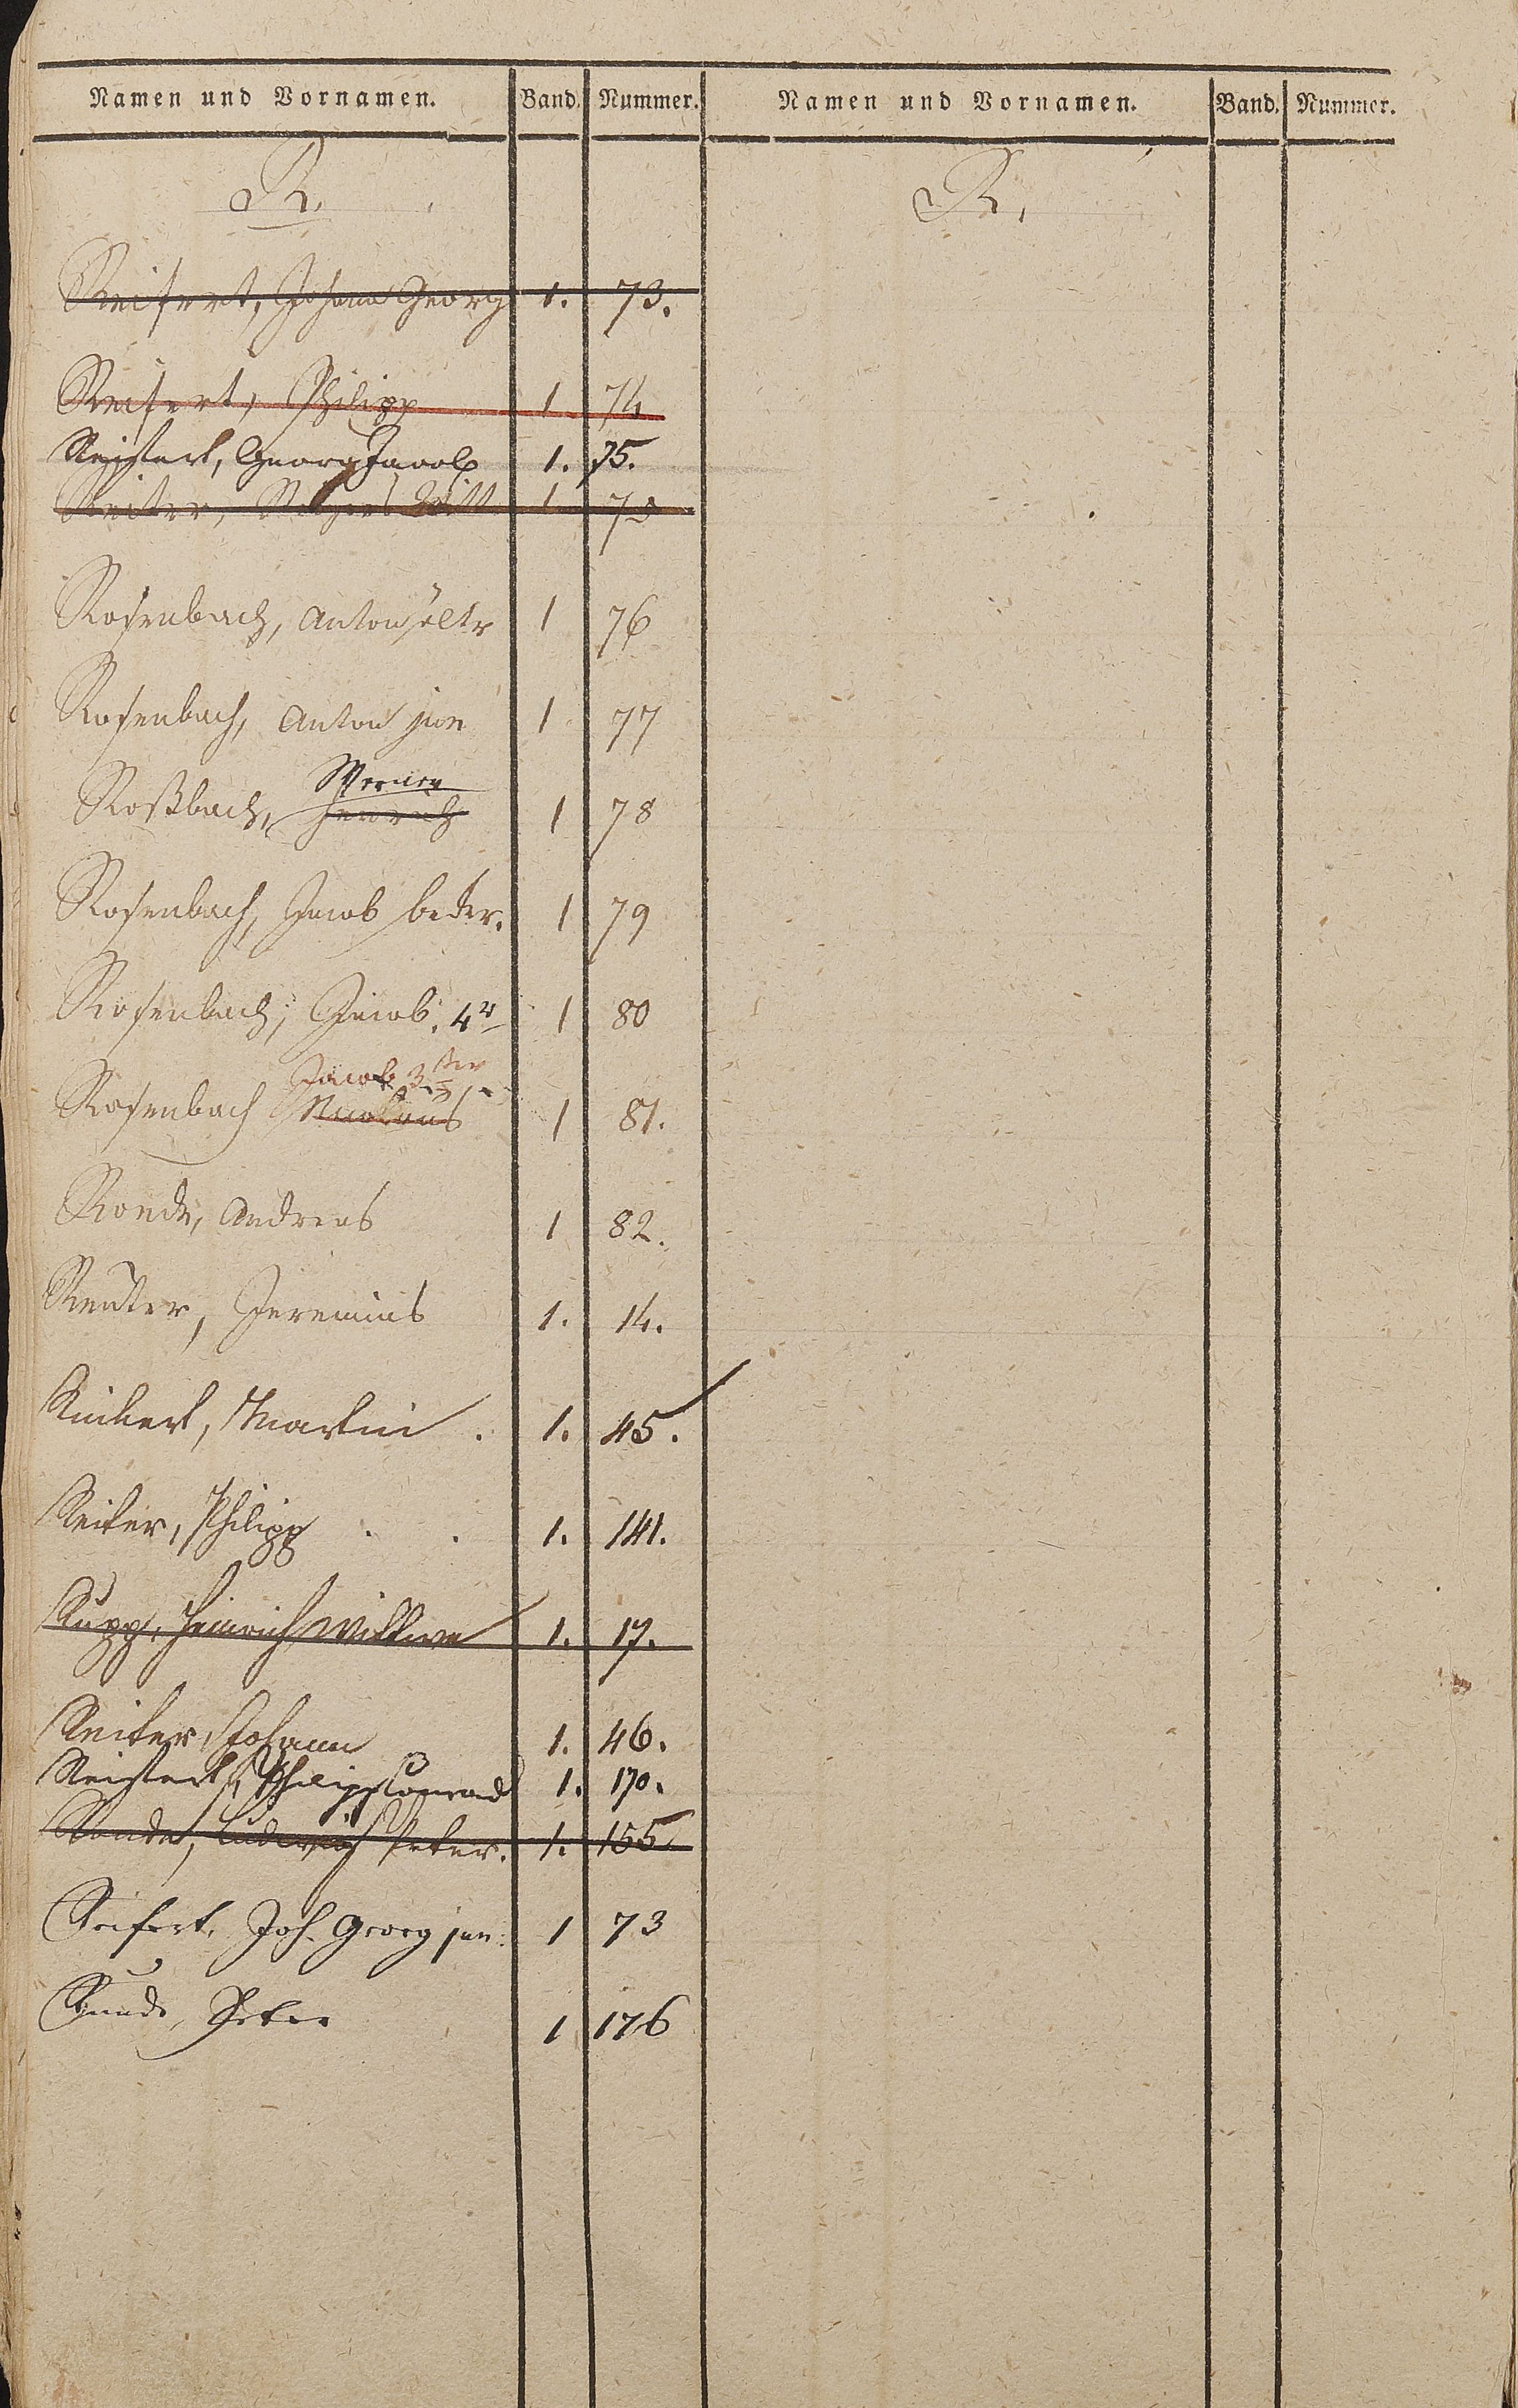 Namen und Vornamen. Band. Nummer. Namen und Vornamen. Band. Nummer.
R. R.
Reifert, Johann Georg 1. 73.
Reifert, Philipp 1 74
Georg 1. 75.
Reiter, Witt 1 75
Rosenbach, Anton 1 76
Rosenbach, Anton jun 1 77
Werner
Roßbach, Henrich 1 78
Rosenbach, Jacob 1 79
Rosenbach, Jacob. 4r 1 80
Jacob 3ter
Rosenbach Nicolaus 1 81.
Andreas 1 82.
Reuter, Jeremias 1. 14.
Martin . 1. 45.
Reiter, Philipp . . 1. 141.
Rupp, Heinrich Wittwe 1. 17.
Reiter, Johann 1. 46.
Philipp Conrad 1. 170.
Ludwig Peter. 1. 155
Reifert, Joh. Georg jun: 1 73
Peter 1 176